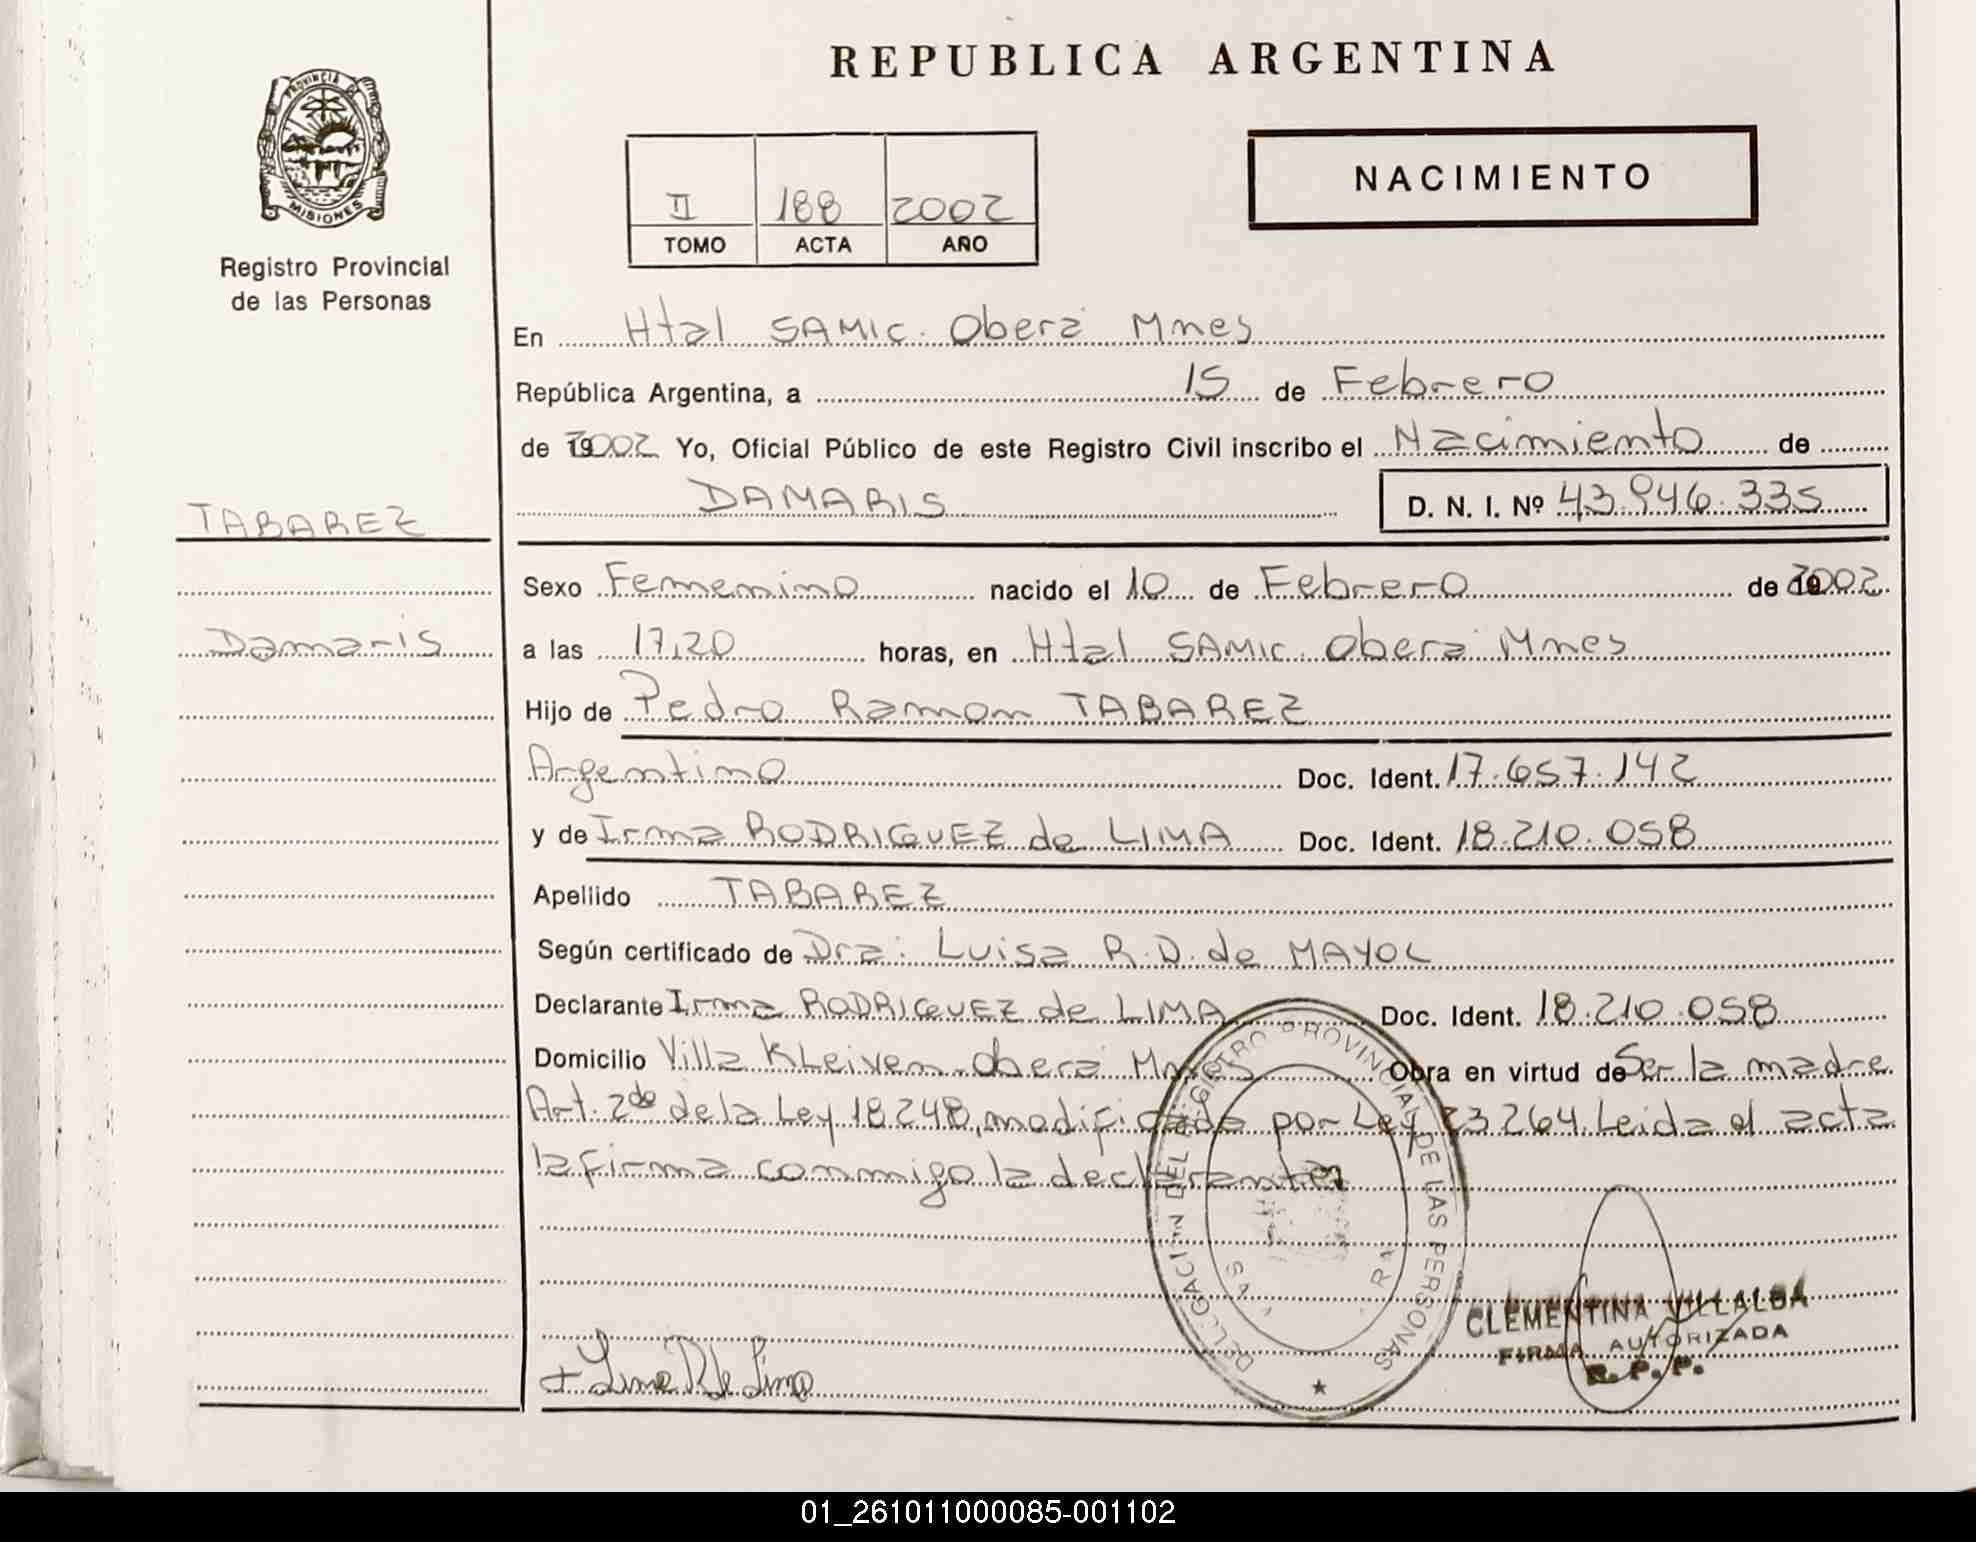 REPUBLICA ARGENTINA
PROVINCIA DE
MISIONES
Registro Provincial
de las Personas
II 188 2002
TOMO ACTA AÑO
NACIMIENTO
En Htal SAMIC. Oberá Mnes
República Argentina, a 15 de Febrero
de 2002 Yo, Oficial Público de este Registro Civil inscribo el Nacimiento de
DAMARIS D. N. I. Nº 43.946.335
TABAREZ
Damaris
Sexo Femenino nacido el 10 de Febrero de 2002
a las 17,20 horas, en Htal SAMIC. Oberá Mnes
Hijo de Pedro Ramon TABAREZ
Argentino Doc. Ident. 17.657.142
y de Irma RODRIGUEZ de LIMA Doc. Ident. 18.210.058
Apellido TABAREZ
Según certificado de Dra: Luisa R.D. de MAYOL
Declarante Irma RODRIGUEZ de LIMA Doc. Ident. 18.210.058
Domicilio Villa Kleiven-Oberá Mnes Obra en virtud de Ser la madre
Art. 2do de la Ley 18.248, modificada por Ley 23.264. Leida el acta
la firma conmigo la declarante
REGISTRO PROVINCIAL DE LAS PERSONAS
CLEMENTINA VILLALBA
FIRMA AUTORIZADA
R. P. P.
01_261011000085-001102